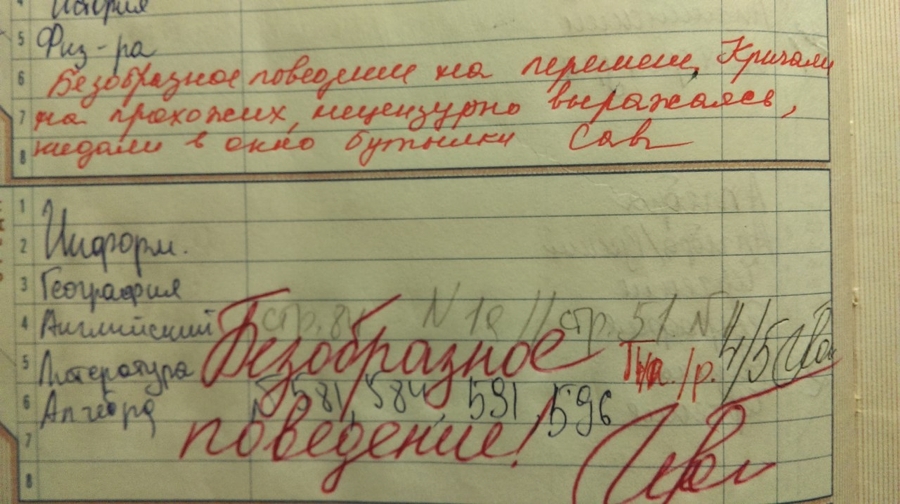 4 История
5 Физ-ра
6 Безобразное поведение на перемене, Кричали
7 на прохожих, нецензурно выражаясь,
8 кидали в окно бутылки
1
2 Информ.
3 География
4 Английский стр. 84 N 1а // стр. 51 N
5 Литература Безобразное /р. 4/5
6 Алгебра 581, 584, 591, 596
7 поведение!
8